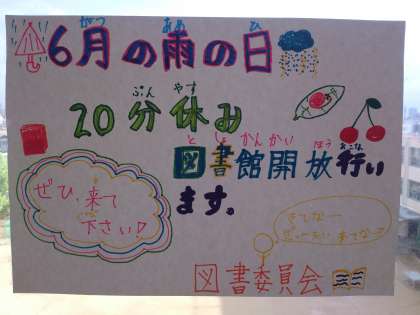 がつ あめ ひ
6月の雨の日
ぷん やす
20分休み
と しょ かんかい ほう おこな
図書館開放行い
ます。
ぜひ、来て
下さい!
きてな〜
図書委員会